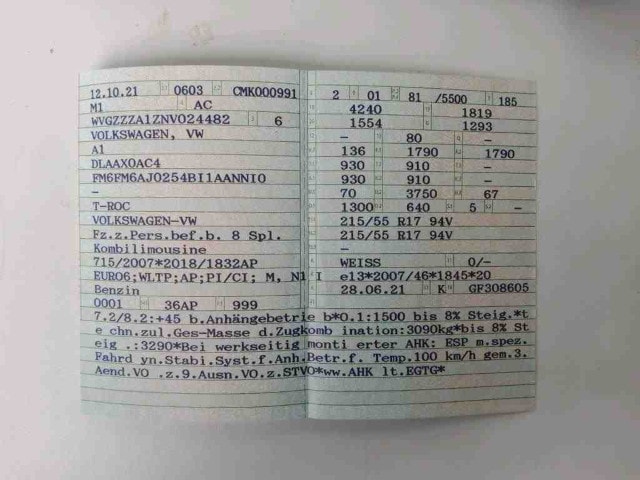 12.10.21 0603 CMK000991
M1 AC
WVGZZZA1ZNV024482 6
VOLKSWAGEN, VW
A1
DLAAX0AC4
FM6FM6AJ0254BI1AANNI0
-
T-ROC
VOLKSWAGEN-VW
Fz.z.Pers.bef.b. 8 Spl.
Kombilimousine
715/2007*2018/1832AP
EURO6;WLTP;AP;PI/CI; M, N1 I
Benzin
0001 36AP 999
2 01 81 /5500 185
4240 1819
1554 1293
- 80 -
136 1790 1790
930 910 -
930 910 -
70 3750 67
1300 640 5 -
215/55 R17 94V
215/55 R17 94V
-
WEISS 0/-
e13*2007/46*1845*20
28.06.21 K GF308605
7.2/8.2:+45 b.Anhängebetrie b*0.1:1500 bis 8% Steig.*t
e chn.zul.Ges-Masse d.Zugkomb ination:3090kg*bis 8% St
eig .:3290*Bei werkseitig monti erter AHK: ESP m.spez.
Fahrd yn.Stabi.Syst.f.Anh.Betr.f. Temp.100 km/h gem.3.
Aend.VO .z.9.Ausn.VO.z.STVO*ww.AHK lt.EGTG*